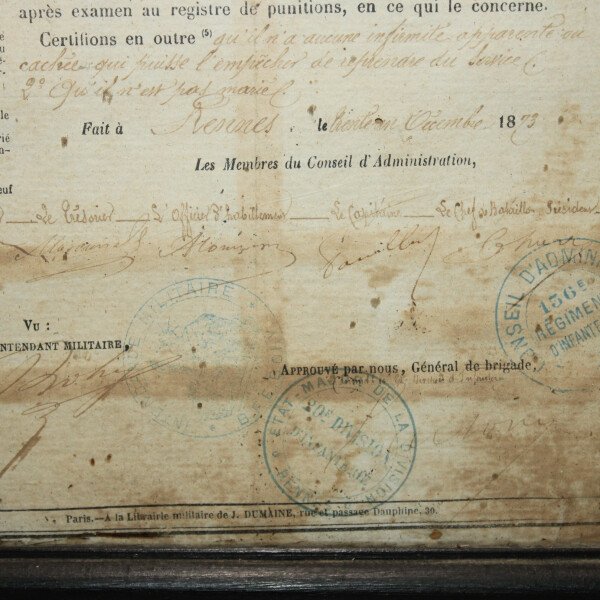 après examen au registre de punitions, en ce qui le concerne.
Certifions en outre (5) qu'il n'a aucune infirmité apparente ou
cachée qui puisse l'empêcher de reprendre du service
2º Qu'il n'est pas marié
Fait à Rennes, le trente un Décembre 1873
Les Membres du Conseil d'Administration,
Le Trésorier L'Officier d'habillement Le Capitaine Le Chef de Bataillon Président
VU :
NTENDANT MILITAIRE,
MILITAIRE
CONSEIL D'ADMIN
136e
RÉGIMEN
D'INFANTE
APPROUVÉ par nous, Général de brigade,
ÉTAT-MAJOR DE LA DIVISION
20e DIVISION
D'INFANTERIE
Paris.—A la Librairie militaire de J. DUMAINE, rue et passage Dauphine, 30.